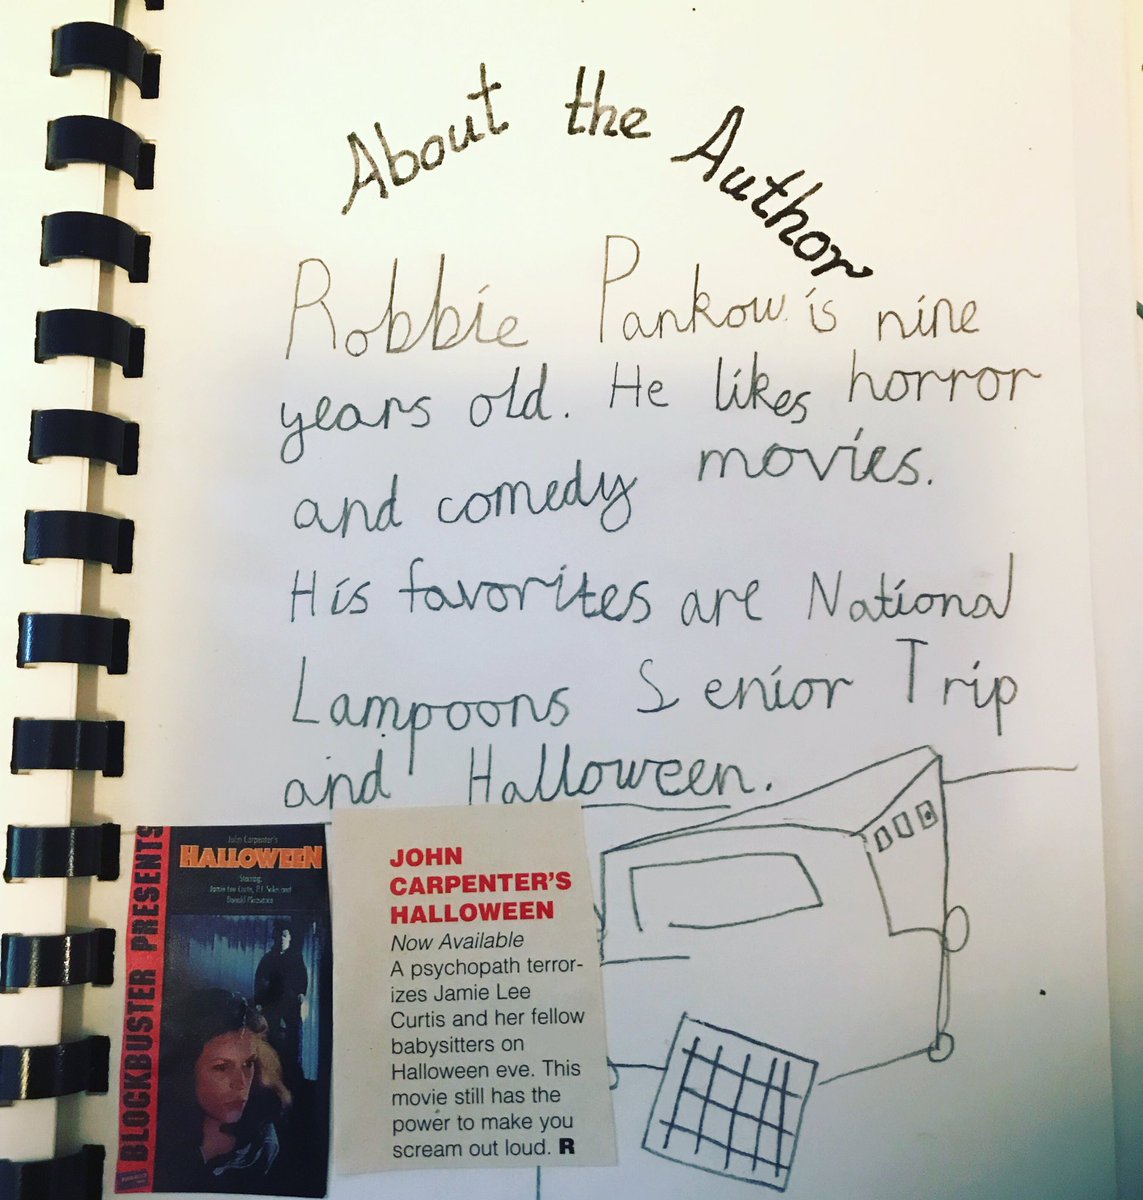 About the Author
Robbie Pankow is nine
years old. He likes horror
and comedy movies.
His favorites are National
Lampoons Senior Trip
and Halloween.
BLOCKBUSTER PRESENTS
John Carpenter's
HALLOWEEN
Starring:
Jamie Lee Curtis, P.J. Soles and
Donald Pleasence
JOHN
CARPENTER'S
HALLOWEEN
Now Available
A psychopath terror-
izes Jamie Lee
Curtis and her fellow
babysitters on
Halloween eve. This
movie still has the
power to make you
scream out loud. R